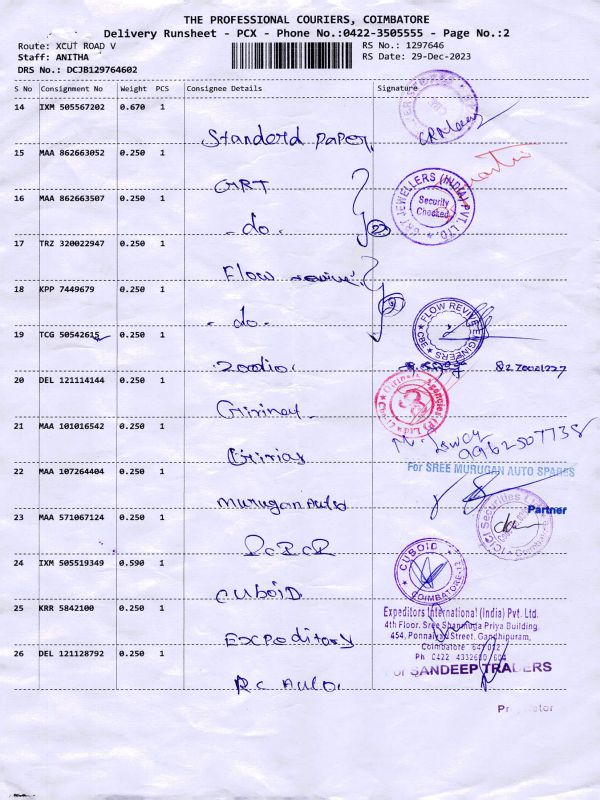 THE PROFESSIONAL COURIERS, COIMBATORE
Delivery Runsheet - PCX - Phone No.:0422-3505555 - Page No.:2
Route: XCUT ROAD V
RS No.: 1297646
Staff: ANITHA
RS Date: 29-Dec-2023
DRS No.: DCJB129764602
S No Consignment No Weight PCS Consignee Details Signature
14 IXM 505567202 0.670 1
Standerd paper.
15 MAA 862663052 0.250 1
GRT
16 MAA 862663507 0.250 1
GRT JEWELLERS (INDIA) PVT. LTD.
Security Checked
- do -
17 TRZ 320022947 0.250 1
Flow
18 KPP 7449679 0.250 1
FLOW REVIVE ENGINEERS
CBE
- do -
19 TCG 50542615 0.250 1
Zoodio. 8270021227
20 DEL 121114144 0.250 1
21 MAA 101016542 0.250 1
9962507738
Girias
22 MAA 107264404 0.250 1
For SREE MURUGAN AUTO SPARES
murugan Auto
Partner
23 MAA 571067124 0.250 1
24 IXM 505519349 0.590 1
CUBOID
COIMBATORE-12
CUBOID
25 KRR 5842100 0.250 1
Expeditors International (India) Pvt. Ltd.
4th Floor, Sree Shanmuga Priya Building,
454, Ponnaiyan Street, Gandhipuram,
Expeditory
Coimbatore
26 DEL 121128792 0.250 1
For SANDEEP TRADERS
RC Auto.